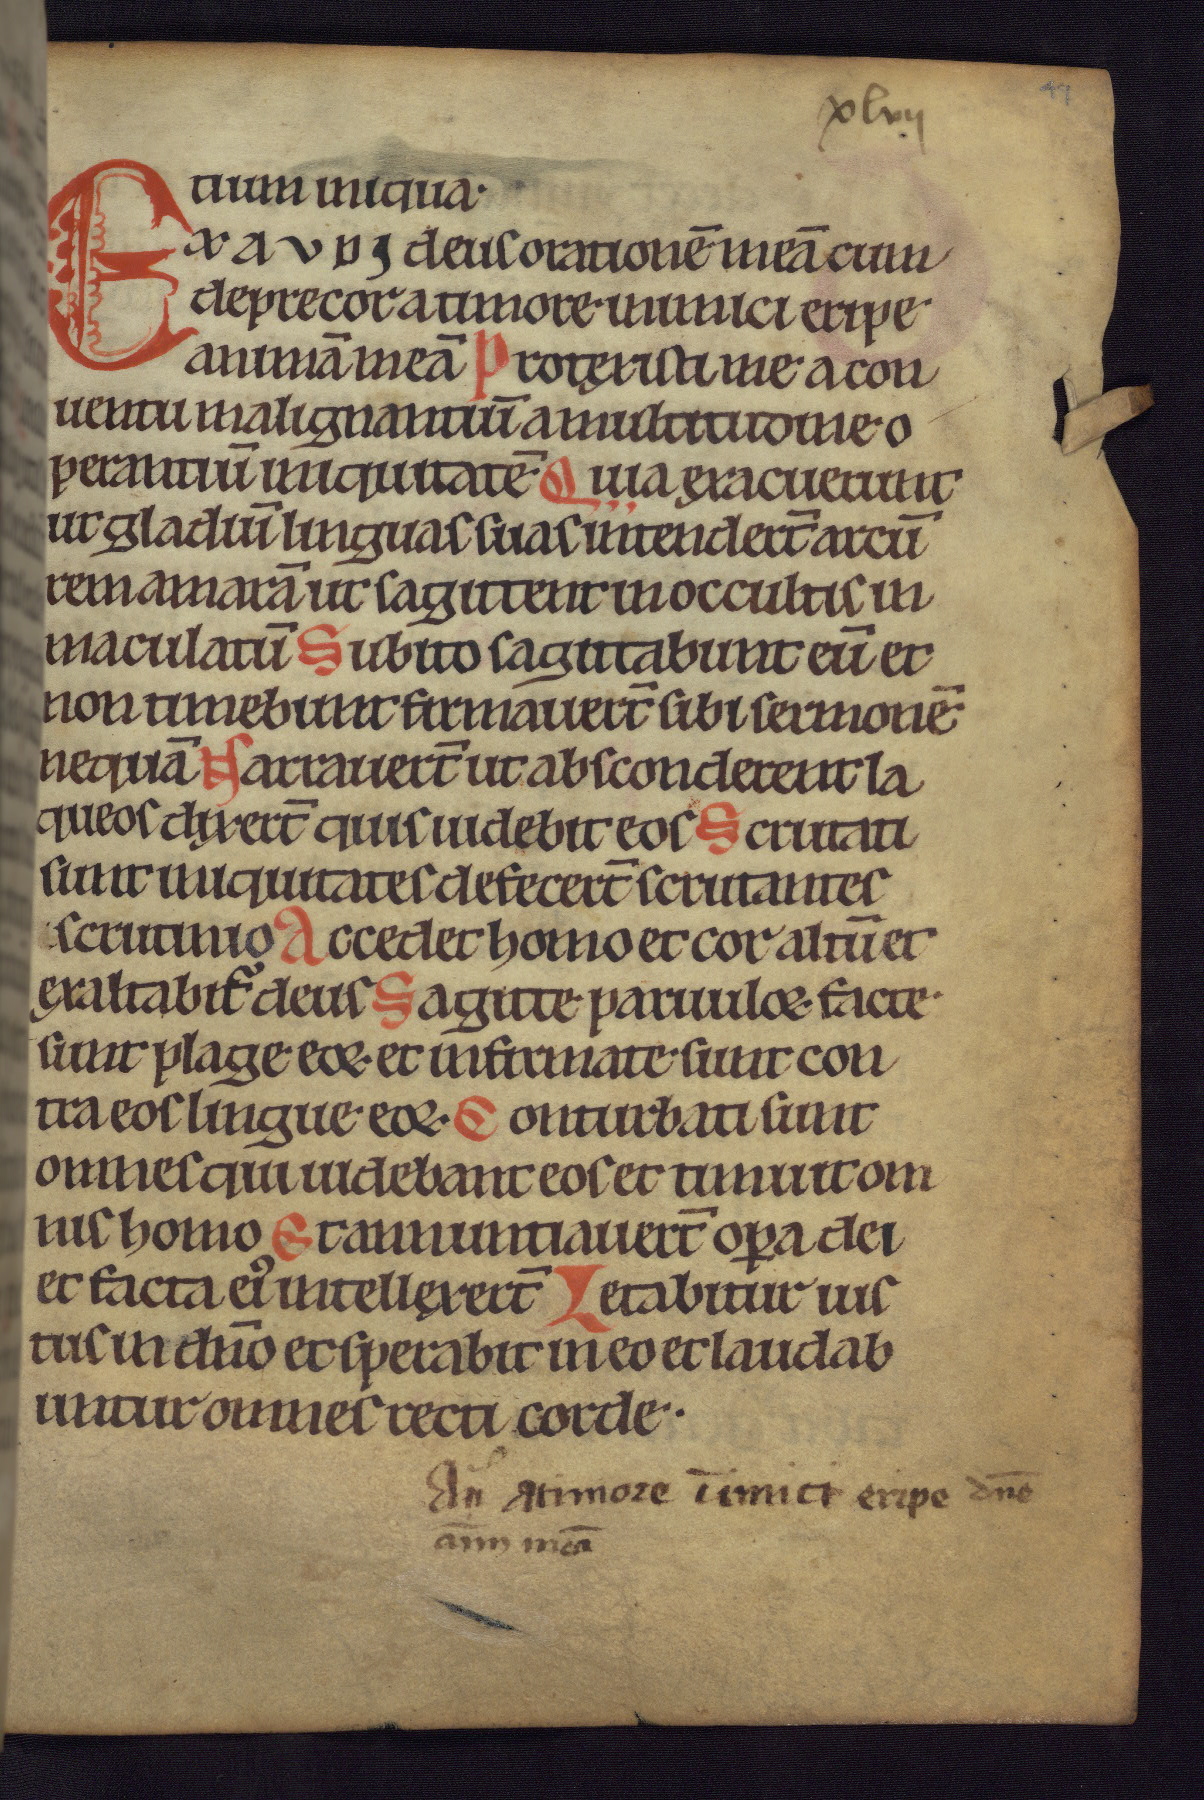 xlvij
49
tium iniqua·
EXAVDI deus orationē meā cum
deprecor a timore· inimici eripe·
animā meā Protexisti me· a con
uentu malignantiū a multitudine· o
perantiū iniquitatē· Quia exacuerunt
ut gladiū linguas suas intenderūt arcū
rem amarā ut sagittent in occultis in
maculatū Subito sagittabunt eū et
non timebunt firmauerūt sibi sermonē
nequā Narrauerūt ut absconderent la
queos dixerūt quis uidebit eos Scrutati
sunt iniquitates defecerūt scrutantes
scrutinio Accedet homo et cor altū et
exaltabit᷑ deus Sagitte· paruuloꝝ· facte·
sunt plage· eoꝝ· et infirmate· sunt con
tra eos lingue· eoꝝ· Conturbati sunt
omnes qui uidebant eos et timuit om
nis homo Et annuntiauerūt oꝑa dei
et facta eiꝰ intellexerūt Letabitur ius
tus in dn̄o et sperabit in eo et laudab
untur omnes recti corde··
An̄ A timore īimici eripe dn̄e
aīm meā